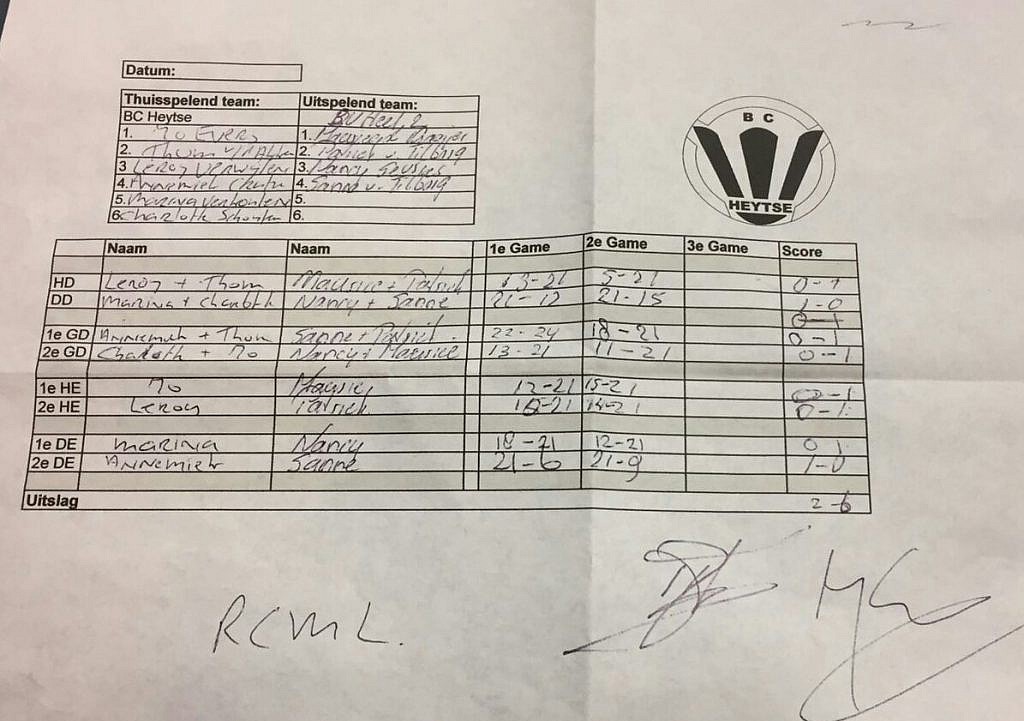 Datum:
Thuisspelend team: Uitspelend team:
BC Heytse BV Heel 2
1. Mo Evers 1.
2. Thom 2. Patrick v. Tilburg
3 Leroy Verwijlen 3. Nancy
4. Annemiek 4. Sanne v. Tilburg
5. Marina Verhouten 5.
6. Charloth Schouten 6.
B C
HEYTSE
Naam Naam 1e Game 2e Game 3e Game Score
HD Leroy + Thom Maurice + Patrick 13-21 5-21 0-1
DD Marina + Charloth Nancy + Sanne 21-12 21-15 1-0
0-1
1e GD Annemiek + Thom Sanne + Patrick 22-24 18-21 0-1
2e GD Charloth + Mo Nancy + Maurice 13-21 11-21 0-1
1e HE Mo Maurice 12-21 15-21 0-1
2e HE Leroy Patrick 16-21 14-21 0-1
1e DE Marina Nancy 18-21 12-21 0 1
2e DE Annemiek Sanne 21-6 21-9 1-0
Uitslag 2-6
RCML.